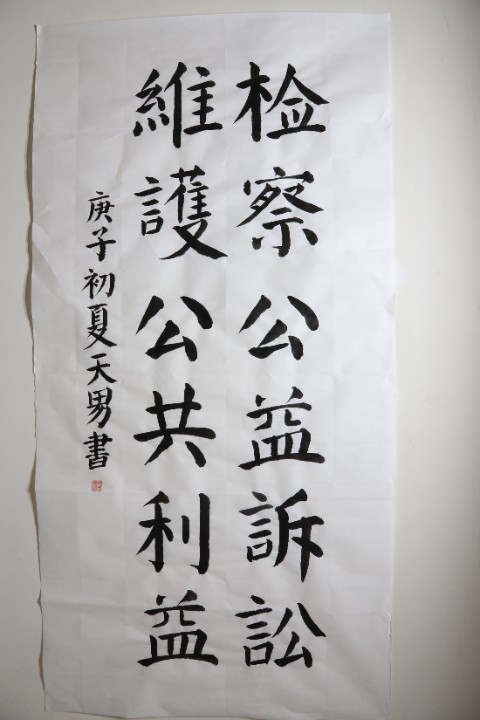 检察公益訴訟
維護公共利益
庚子初夏天男書